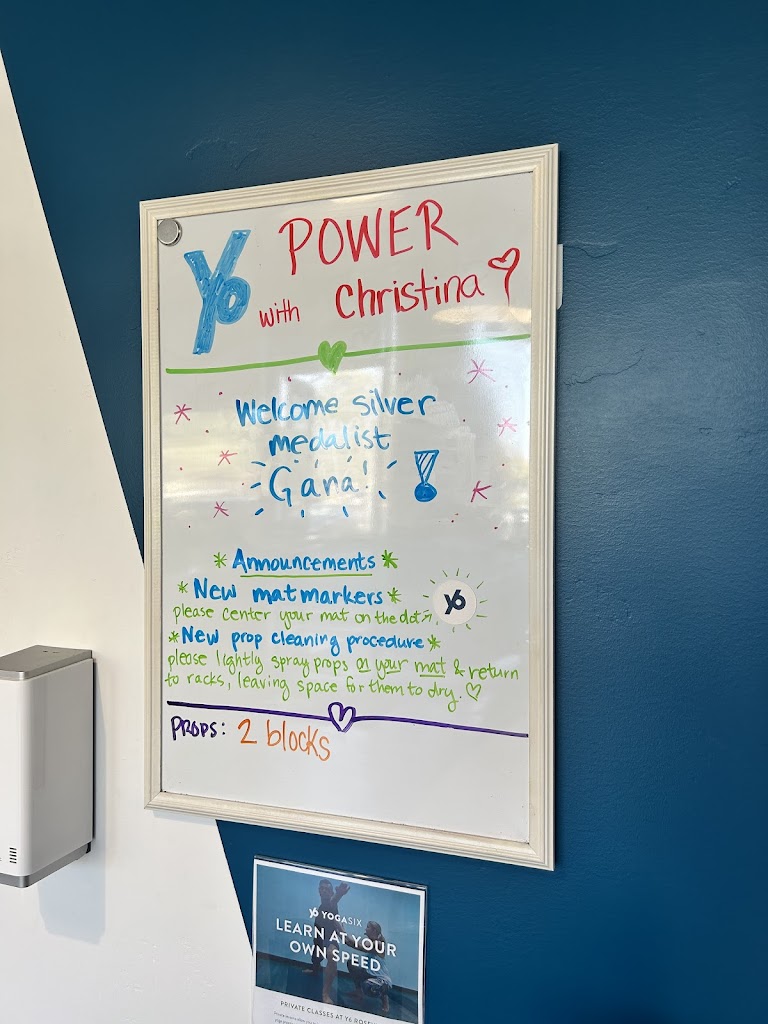 Y6 POWER
with Christina
Welcome silver
medalist
Gana!
Announcements
New mat markers
please center your mat on the dot
Y6
New prop cleaning procedure
please lightly spray props on your mat & return
to racks, leaving space for them to dry.
PROPS: 2 blocks
Y6 YOGASIX
LEARN AT YOUR
OWN SPEED
PRIVATE CLASSES AT Y6